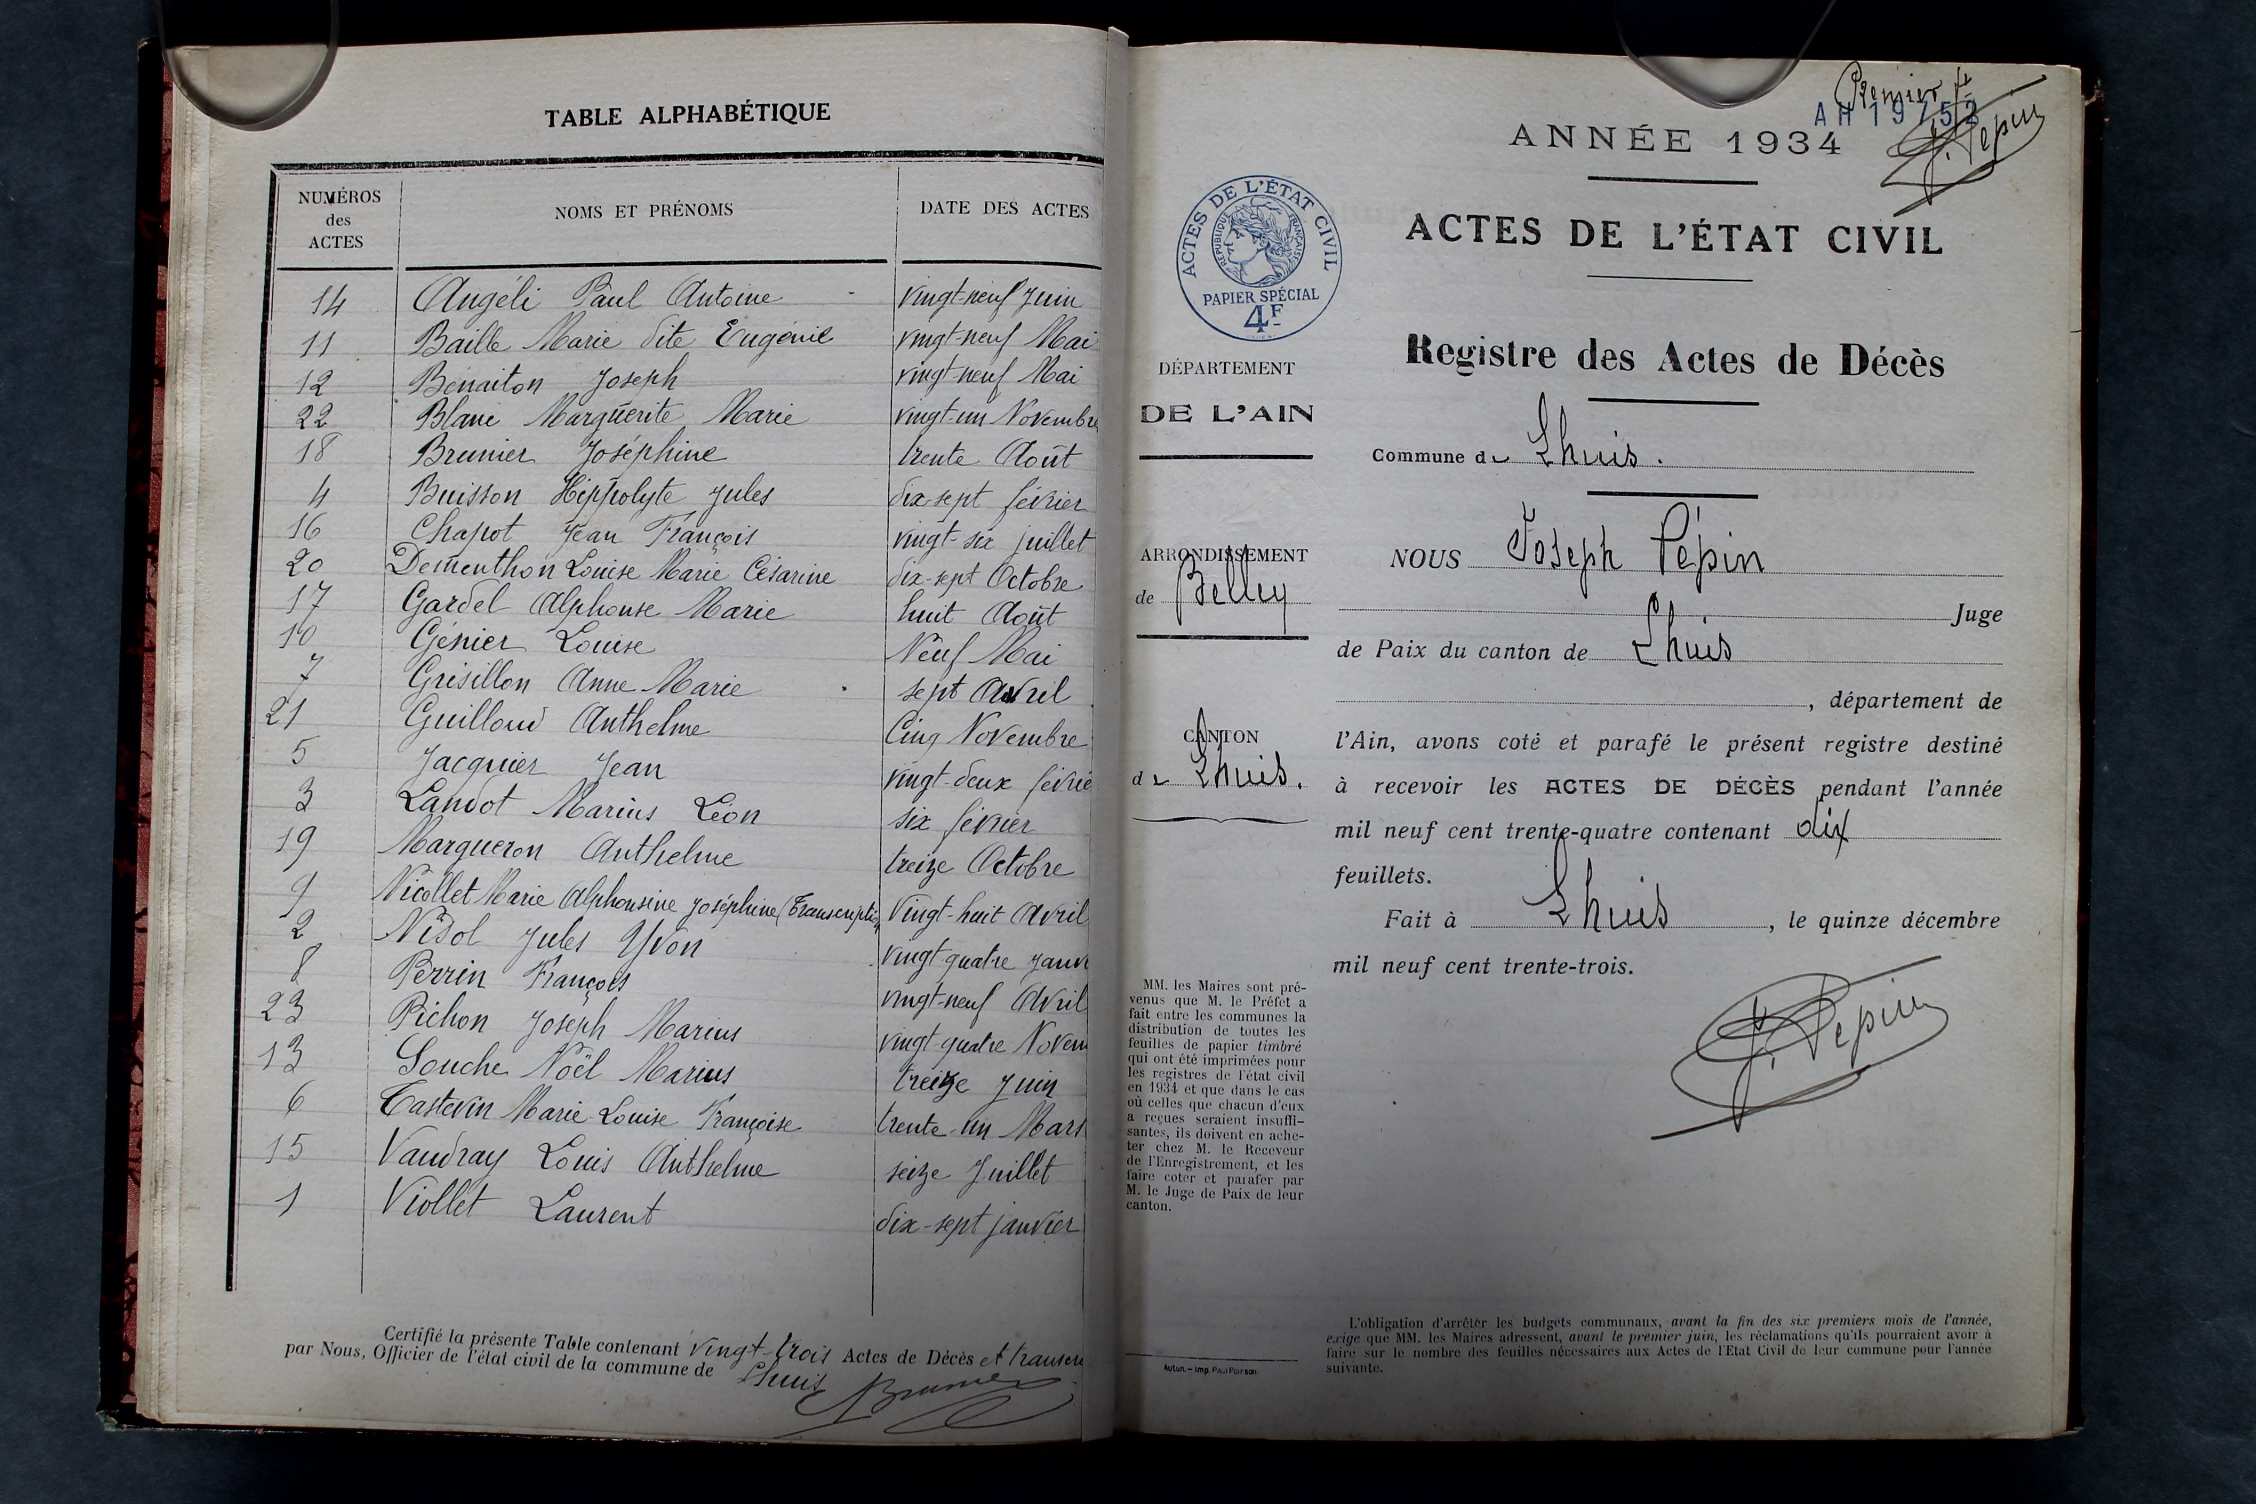 TABLE ALPHABÉTIQUE
NUMÉROS des ACTES NOMS ET PRÉNOMS DATE DES ACTES
14 Angéli Paul Antoine vingt-neuf Juin
11 Baille Marie dite Eugénie vingt-neuf Mai
12 Bénaiton Joseph vingt-neuf Mai
22 Blanc Marguerite Marie vingt-un Novembre
18 Brunier Joséphine trente Août
4 Buisson Hippolyte Jules dix-sept février
16 Chapot Jean François vingt-six juillet
20 Dementhon Louise Marie Césarine dix-sept Octobre
17 Gardel Alphonse Marie huit Août
10 Génier Louise Neuf Mai
7 Grisillon Anne Marie sept Avril
21 Guilloud Anthelme Cinq Novembre
5 Jacquier Jean vingt-deux févrie
3 Landot Marius Léon six février
19 Margueron Anthelme treize Octobre
9 Nicollet Marie Alphonsine Joséphine (Transcription Vingt-huit Avril
2 Nidol Jules Yvon vingt-quatre Janv
8 Perrin François vingt-neuf Avril
23 Pichon Joseph Marius vingt-quatre Novem
13 Souche Noël Marius treize Juin
6 Tastevin Marie Louise Françoise trente-un Mars
15 Vaudray Louis Anthelme seize Juillet
1 Viollet Laurent dix-sept janvier
Certifié la présente Table contenant vingt-trois Actes de Décès et transcr
par Nous, Officier de l'état civil de la commune de Lhuis
Brunier
Premier ft
AH 19752
J. Pepin
ANNÉE 1934
ACTES DE L'ÉTAT CIVIL
Registre des Actes de Décès
Commune de Lhuis.
ACTES DE L'ÉTAT CIVIL
RÉPUBLIQUE FRANÇAISE
PAPIER SPÉCIAL
4F
DÉPARTEMENT
DE L'AIN
ARRONDISSEMENT
de Belley
CANTON
de Lhuis.
MM. les Maires sont pré-
venus que M. le Préfet a
fait entre les communes la
distribution de toutes les
feuilles de papier timbré
qui ont été imprimées pour
les registres de l'état civil
en 1934 et que dans le cas
où celles que chacun d'eux
a reçues seraient insuffi-
santes, ils doivent en ache-
ter chez M. le Receveur
de l'Enregistrement, et les
faire coter et parafer par
M. le Juge de Paix de leur
canton.
Autun. — Imp. Paul Poirson
NOUS Joseph Pépin
Juge
de Paix du canton de Lhuis
, département de
l'Ain, avons coté et parafé le présent registre destiné
à recevoir les ACTES DE DÉCÈS pendant l'année
mil neuf cent trente-quatre contenant dix
feuillets.
Fait à Lhuis, le quinze décembre
mil neuf cent trente-trois.
J. Pepin
L'obligation d'arrêter les budgets communaux, avant la fin des six premiers mois de l'année,
exige que MM. les Maires adressent, avant le premier juin, les réclamations qu'ils pourraient avoir à
faire sur le nombre des feuilles nécessaires aux Actes de l'Etat Civil de leur commune pour l'année
suivante.